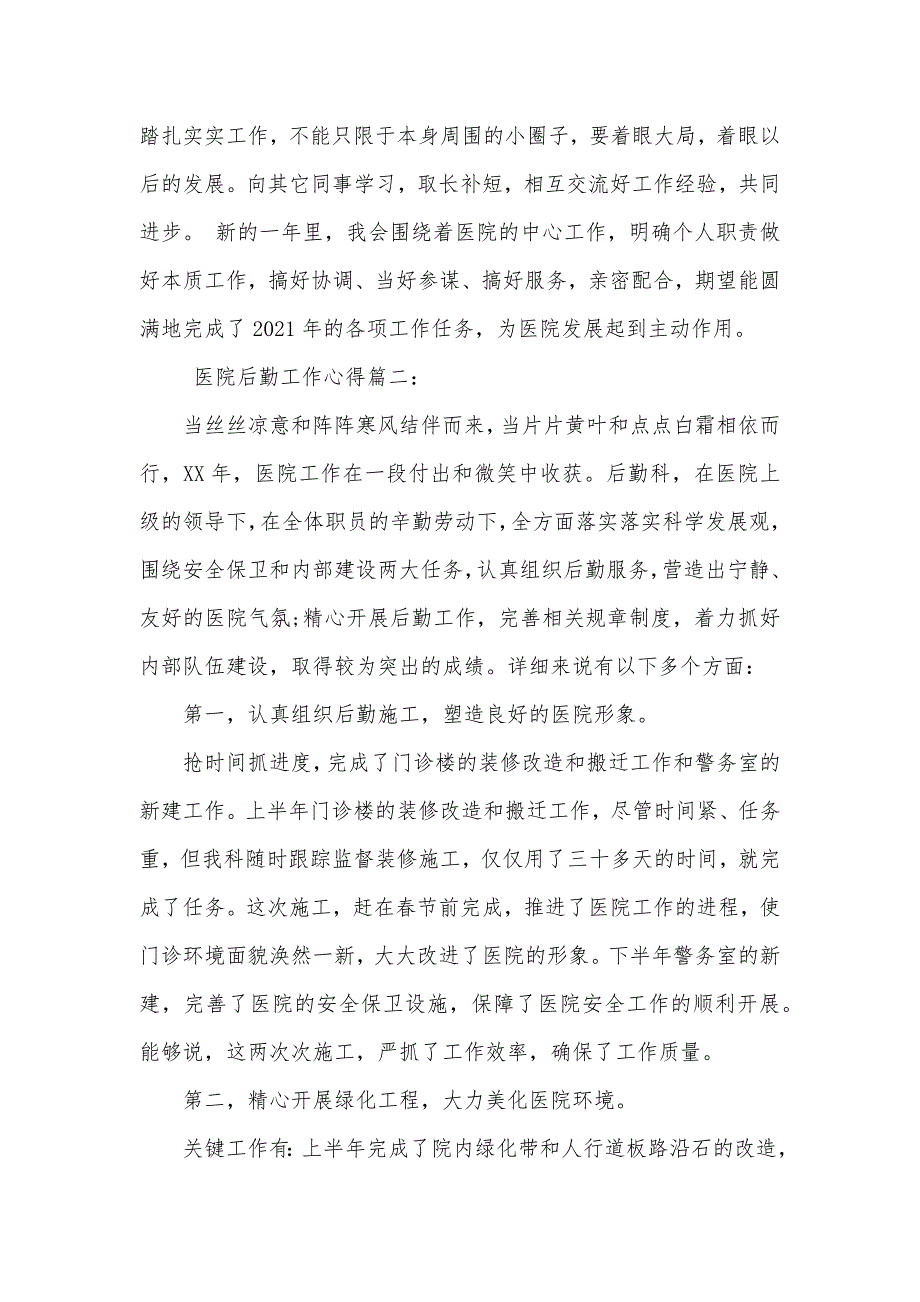 踏扎实实工作，不能只限于本身周围的小圈子，要着眼大局，着眼以
后的发展。向其它同事学习，取长补短，相互交流好工作经验，共同
进步。 新的一年里，我会围绕着医院的中心工作，明确个人职责做
好本质工作，搞好协调、当好参谋、搞好服务，亲密配合，期望能圆
满地完成了 2021 年的各项工作任务，为医院发展起到主动作用。
医院后勤工作心得篇二：
当丝丝凉意和阵阵寒风结伴而来，当片片黄叶和点点白霜相依而
行，XX 年，医院工作在一段付出和微笑中收获。后勤科，在医院上
级的领导下，在全体职员的辛勤劳动下，全方面落实落实科学发展观，
围绕安全保卫和内部建设两大任务，认真组织后勤服务，营造出宁静、
友好的医院气氛;精心开展后勤工作，完善相关规章制度，着力抓好
内部队伍建设，取得较为突出的成绩。详细来说有以下多个方面：
第一，认真组织后勤施工，塑造良好的医院形象。
抢时间抓进度，完成了门诊楼的装修改造和搬迁工作和警务室的
新建工作。上半年门诊楼的装修改造和搬迁工作，尽管时间紧、任务
重，但我科随时跟踪监督装修施工，仅仅用了三十多天的时间，就完
成了任务。这次施工，赶在春节前完成，推进了医院工作的进程，使
门诊环境面貌涣然一新，大大改进了医院的形象。下半年警务室的新
建，完善了医院的安全保卫设施，保障了医院安全工作的顺利开展。
能够说，这两次次施工，严抓了工作效率，确保了工作质量。
第二，精心开展绿化工程，大力美化医院环境。
关键工作有：上半年完成了院内绿化带和人行道板路沿石的改造，